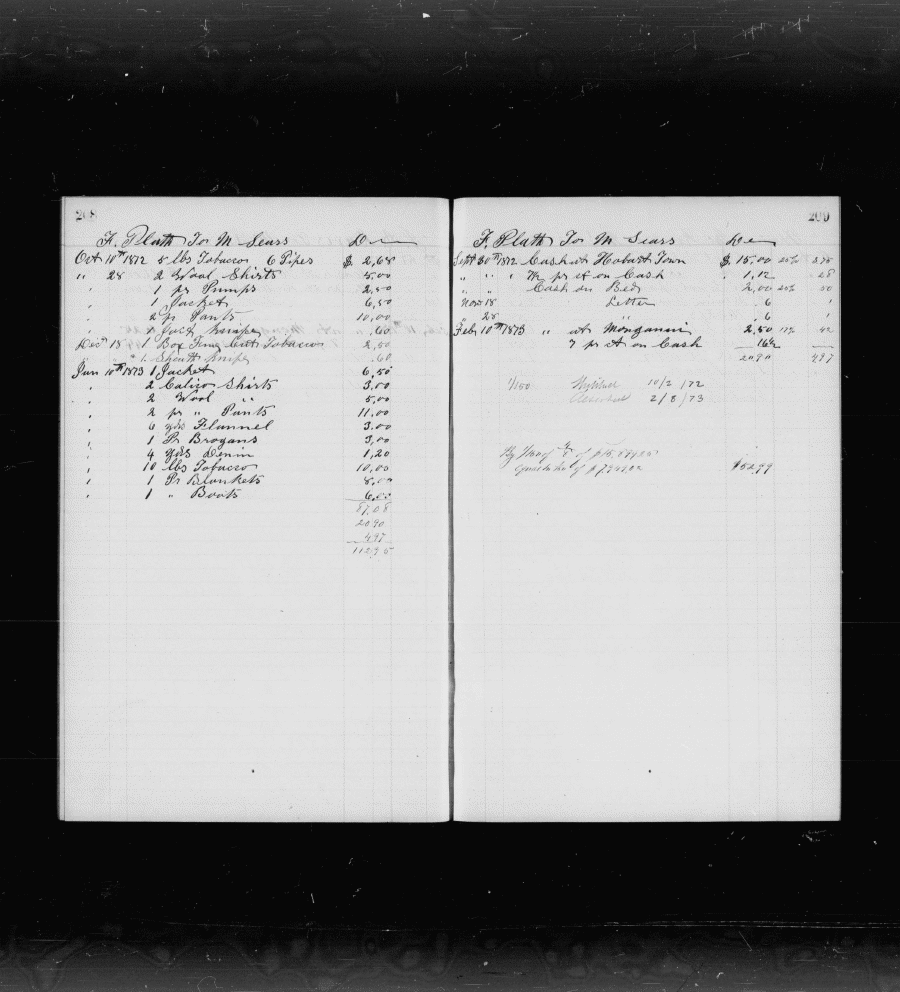 208
F. Plath To M Sears Dr
Oct 10th 1872 5 lbs Tobacco 6 Pipes $ 2,68
" 28 2 Wool Shirts 5,00
" 1 pr Pumps 2,50
" 1 Jacket 6,50
" 2 pr Pants 10,00
" 1 Knife ,60
Decr 18 1 Box Fine Cut Tobacco 2,50
" " 1 Sheath Knife .60
Jan 10th 1873 1 Jacket 6,50
" 2 Calico Shirts 3,00
" 2 Wool " 5,00
" 2 pr " Pants 11,00
" 6 yds Flannel 3,00
" 1 Pr Brogans 3,00
" 4 yds Denim 1,20
" 10 lbs Tobacco 10,00
" 1 Pr Blankets 8,00
" 1 " Boots 6,00
87,08
20 90
4 97
112 95
209
F. Plath To M Sears Dr
Sept 30th 1872 Cash at Hobart Town $ 15,00 25% 3 75
" " " 7½ pr ct on Cash " 1,12 28
" " Cash on Bed 2,00 25% 50
Nov 18 Letter " 6 1
" 28 " " 6 1
Feb 10th 1873 " at Monganui 2,50 17% 42
7 pr ct on Cash 16½
20 90 4 97
1/150 10/2/72
2/8/73
By 1/150 of of
of
$52,99